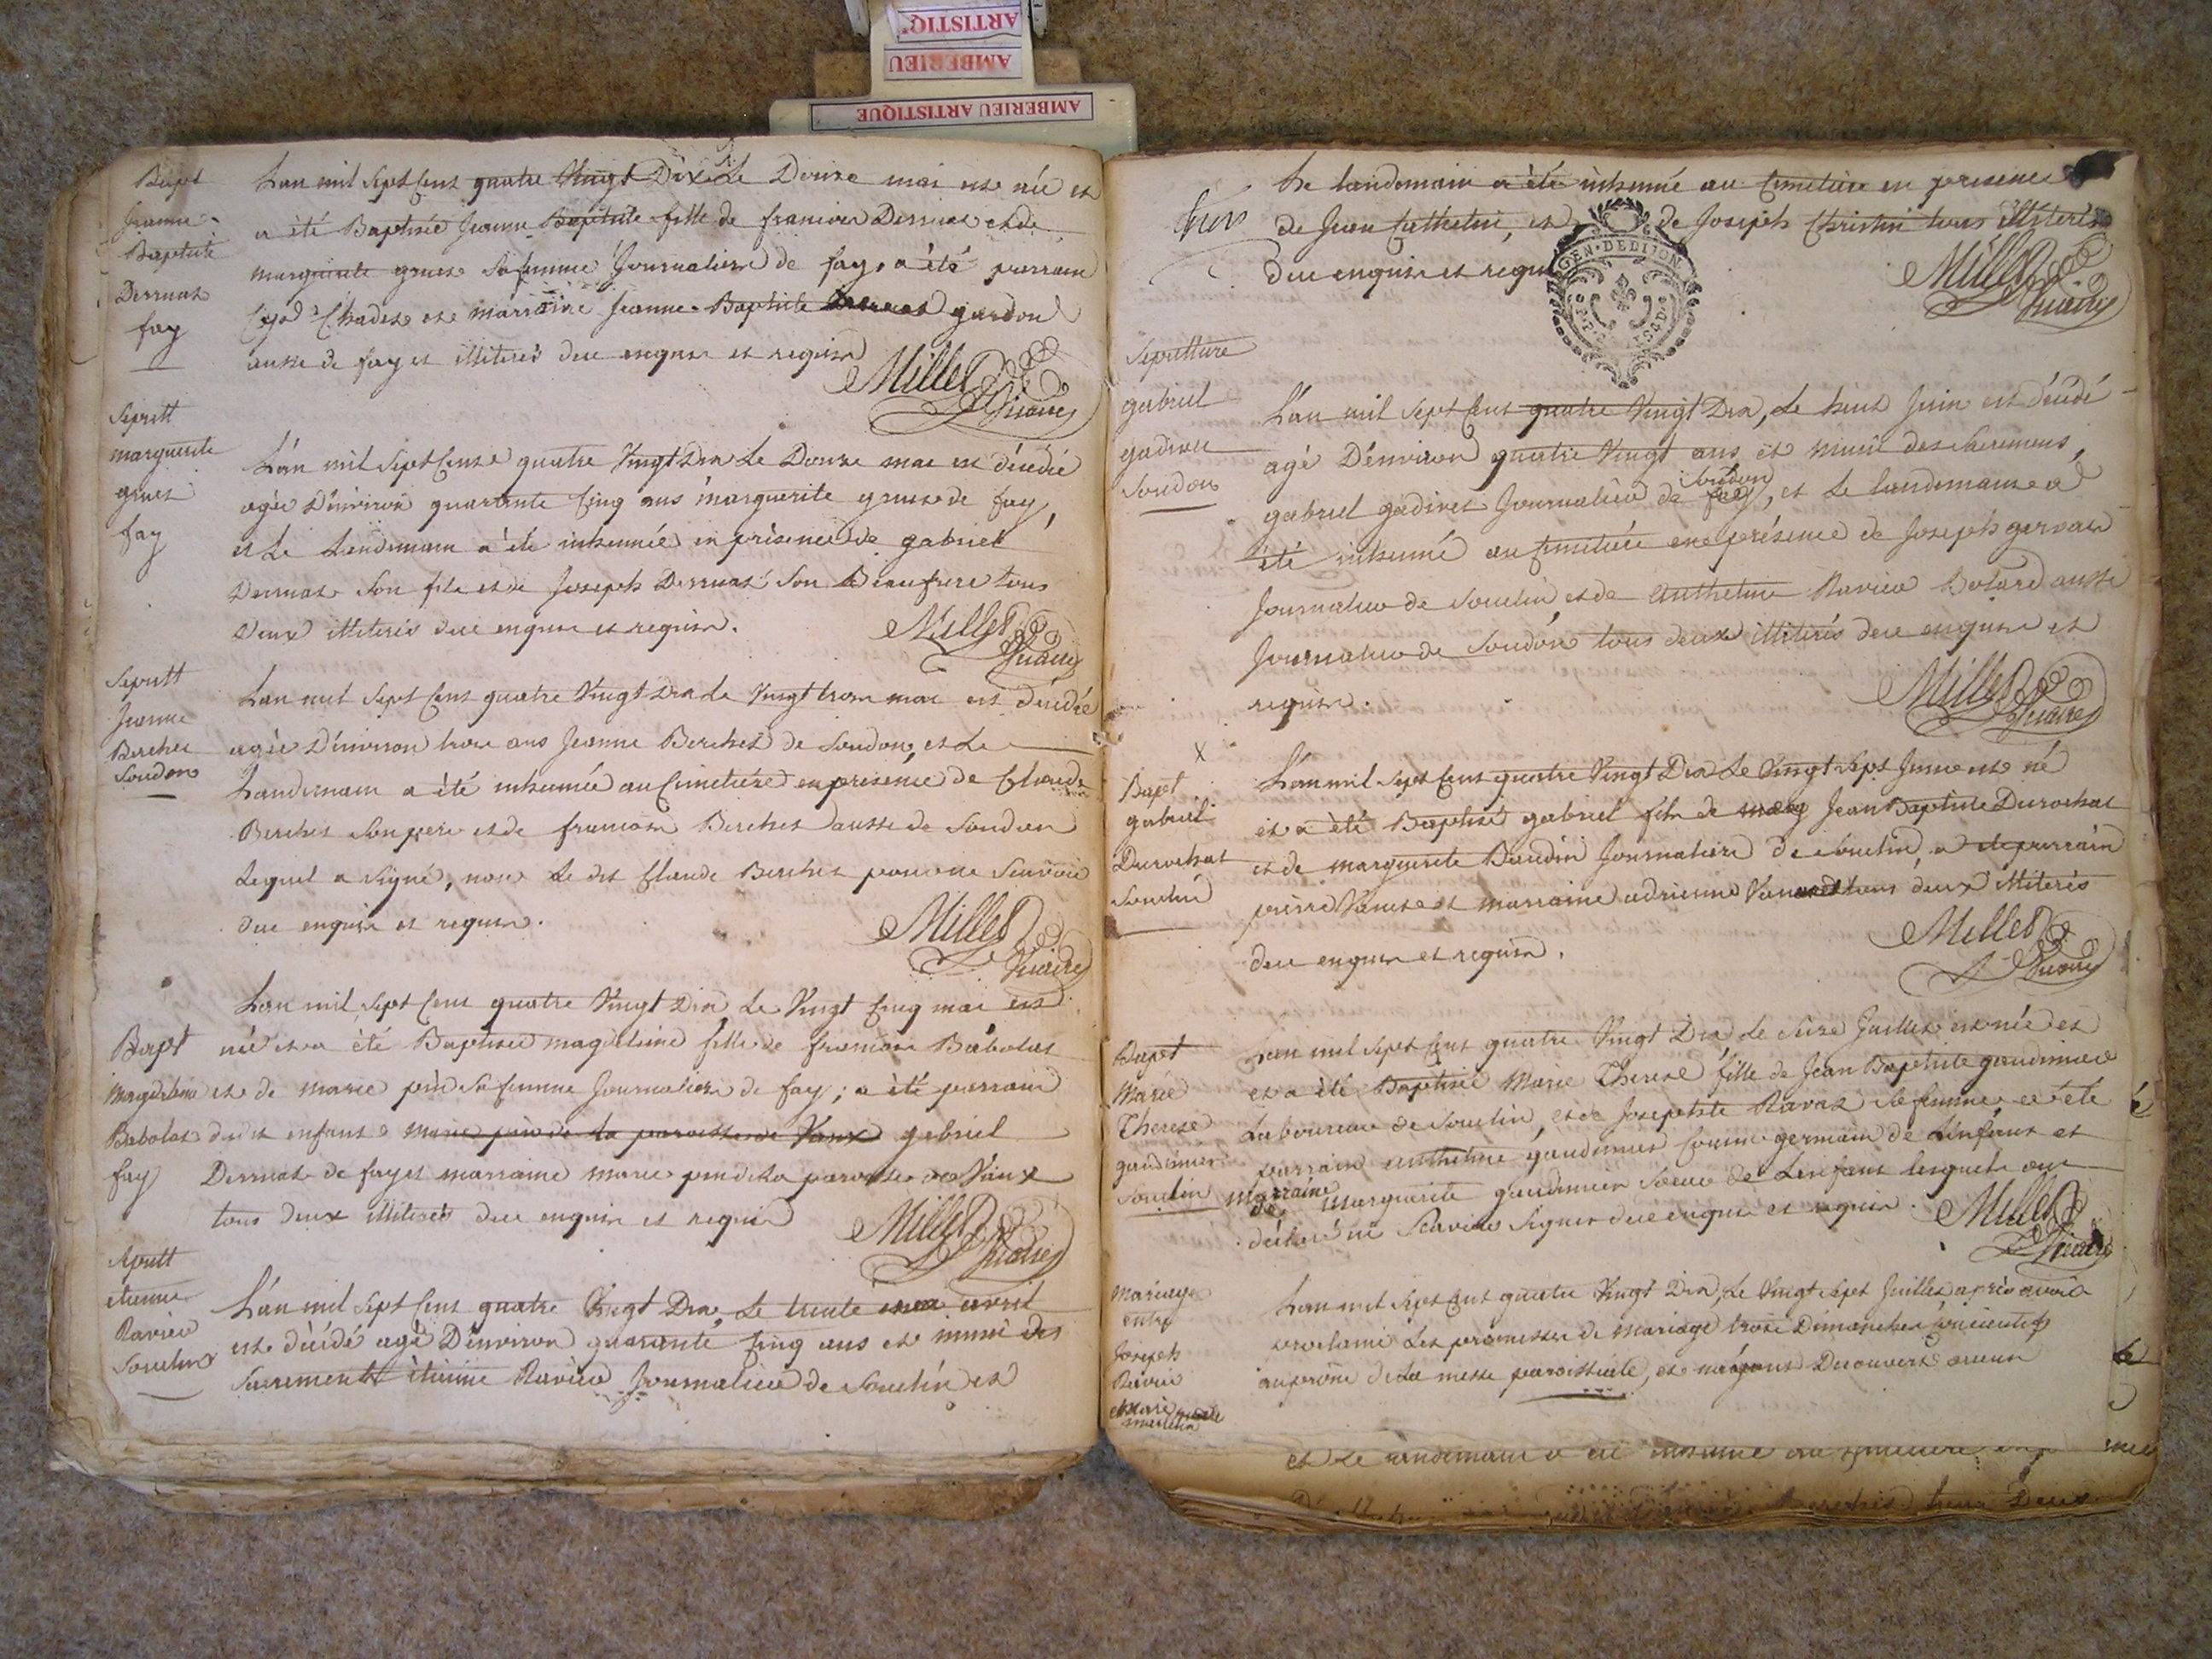 ARTISTIQ
AMBERIEU
AMBERIEU ARTISTIQUE
Bapt
Jeanne
Baptiste
Derruaz
fay
L'an mil sept cent quatre Vingt Dix Le Douze mai est née et
a été Baptisée Jeanne Baptiste fille de françois Derruaz et de
marguerite sa femme Journaliers de fay, a été parrain
et marraine Jeanne Baptiste gardon
aussi de fay et illiterés de ce enquis et requis
Millet
Vicaire
Sepult
marguerite
fay
L'an mil Sept Cent quatre Vingt Dix Le Douze mai est décédée
agée D'environ quarante Cinq ans marguerite de fay
et Le Lendemain a été inhumée en présence de gabriel
Derruaz Son fils et de Joseph Derruaz Son Beaufrere tous
Deux illiterés de ce enquis et requis.
Millet
Vicaire
Sepult
Jeanne
Berchet
Soudon
L'an mil Sept Cent quatre Vingt Dix Le Vingt trois mai est décédée
agée D'environ trois ans Jeanne Berchet de Soudon, et Le
Landemain a été inhumée au Cimetiere en présence de Claude
Berchet Son pere et de francois Berchet aussi de Soudon
Lequel a Signé, non Le dit Claude Berchet pour ne Scavoir
de ce enquis et requis.
Millet
Vicaire
Bapt
Magdeleine
Babolat
fay
L'an mil Sept Cent quatre Vingt Dix Le Vingt Cinq mai est
née et a été Baptisée magdeleine fille de francois Babolat
et de marie sa femme Journaliers de fay; a été parrain
du dit enfant marie de la paroisse de Vaux gabriel
Derruaz de fay et marraine marie de la paroisse de Vaux
tous deux illiterés de ce enquis et requis
Millet
Vicaire
Sepult
etienne
Ravier
Souclin
L'an mil Sept Cent quatre Vingt Dix, Le trente avril
est décédé agé D'environ quarante Cinq ans et muni des
Sacrements étienne Ravier Journalier de Souclin et
Le landemain a été inhumé au Cimetiere en presence
de Jean et de Joseph Christin tous illiterés
de ce enquis et requis
GEN. DE DIJON
Millet
Vicaire
Sepulture
gabriel
Soudon
L'an mil Sept Cent quatre Vingt Dix, Le huit Juin est décédé
agé D'environ quatre Vingt ans et muni des Sacremens
Soudon
gabriel Journalier de fay, et Le landemain a
été inhumé au Cimetiere en présence de Joseph gervais
Journalier de Souclin, et de Anthelme Ravier aussi
Journalier de Soudon tous deux illiterés de ce enquis et
requis.
Millet
Vicaire
x
Bapt
gabriel
Durochat
Souclin
L'an mil Sept Cent quatre Vingt Dix Le Vingt Sept Juin est né
et a été Baptisé gabriel fils de Jean Baptiste Durochat
et de marguerite Baudin Journaliers de Souclin, a été parrain
pierre et marraine adrienne tous deux illiterés
de ce enquis et requis.
Millet
Vicaire
Bapt
Marie
Therese
gaudinier
Souclin
L'an mil Sept Cent quatre Vingt Dix Le Juillet est née et
et a été Baptisée Marie Therese fille de Jean Baptiste
Laboureur de Souclin, et de Josephte Ravaz sa femme, a été
parrain Anthelme Cousin germain de L'enfant et
marraine marguerite Soeur de L'enfant lesquels ont
déclaré ne Scavoir Signer de ce enquis et requis.
Millet
Vicaire
mariage
entre
Joseph
Ravier
L'an mil Sept Cent quatre Vingt Dix, Le Vingt Sept Juillet après avoir
proclamé Les promesses de mariage trois Dimanches
au prône de La messe paroissiale, et n'ayant Decouvert aucun
et Le landemain a été inhumé au Cimetiere